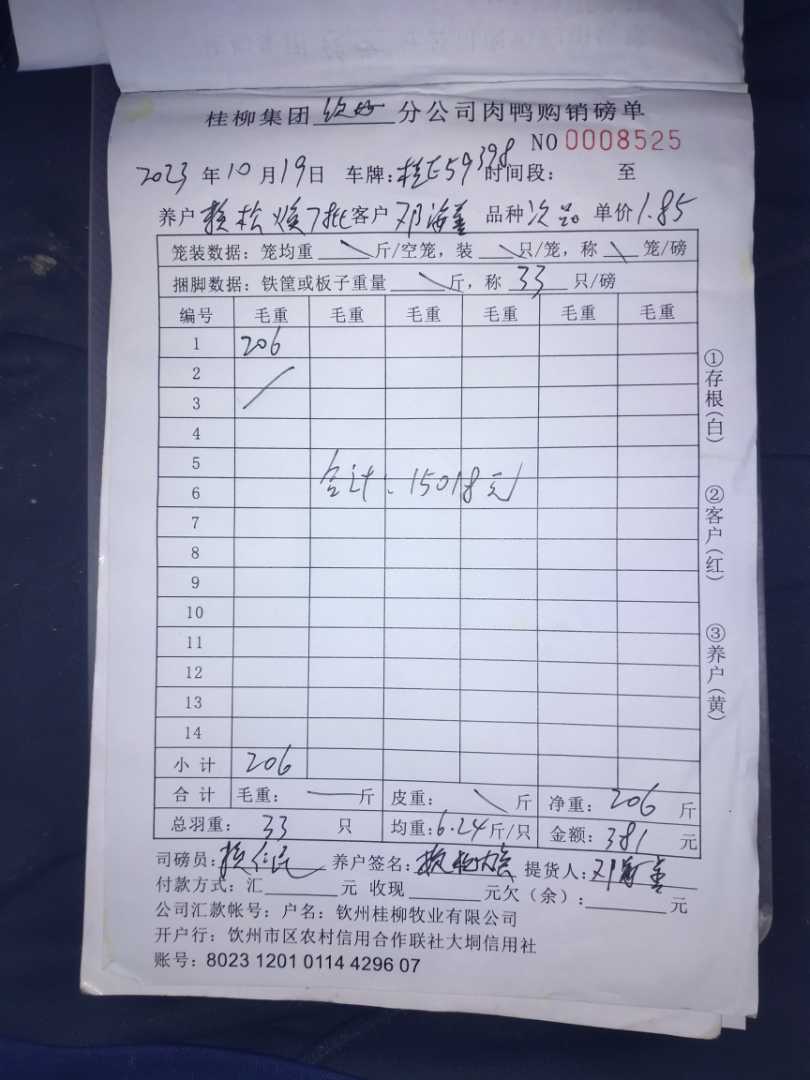 桂柳集团 钦州 分公司肉鸭购销磅单
NO 0008525
2023 年 10 月 19 日 车牌: 桂E59398 时间段: 至
养户 赖松焕 批客户 邓海善 品种 次品 单价 1.85
笼装数据: 笼均重 斤/空笼, 装 只/笼, 称 笼/磅
捆脚数据: 铁筐或板子重量 斤, 称 33 只/磅
编号 毛重 毛重 毛重 毛重 毛重 毛重
1 206
2
3
4
5
6
合计: 15018元
7
8
9
10
11
12
13
14
小 计 206
合 计 毛重: 斤 皮重: 斤 净重: 206 斤
总羽重: 33 只 均重: 6.24 斤/只 金额: 381 元
司磅员: 养户签名: 提货人: 邓海善
付款方式: 汇 元 收现 元欠 (余): 元
公司汇款帐号: 户名: 钦州桂柳牧业有限公司
开户行: 饮州市区农村信用合作联社大垌信用社
账号: 8023 1201 0114 4296 07
①存根(白)
②客户(红)
③养户(黄)